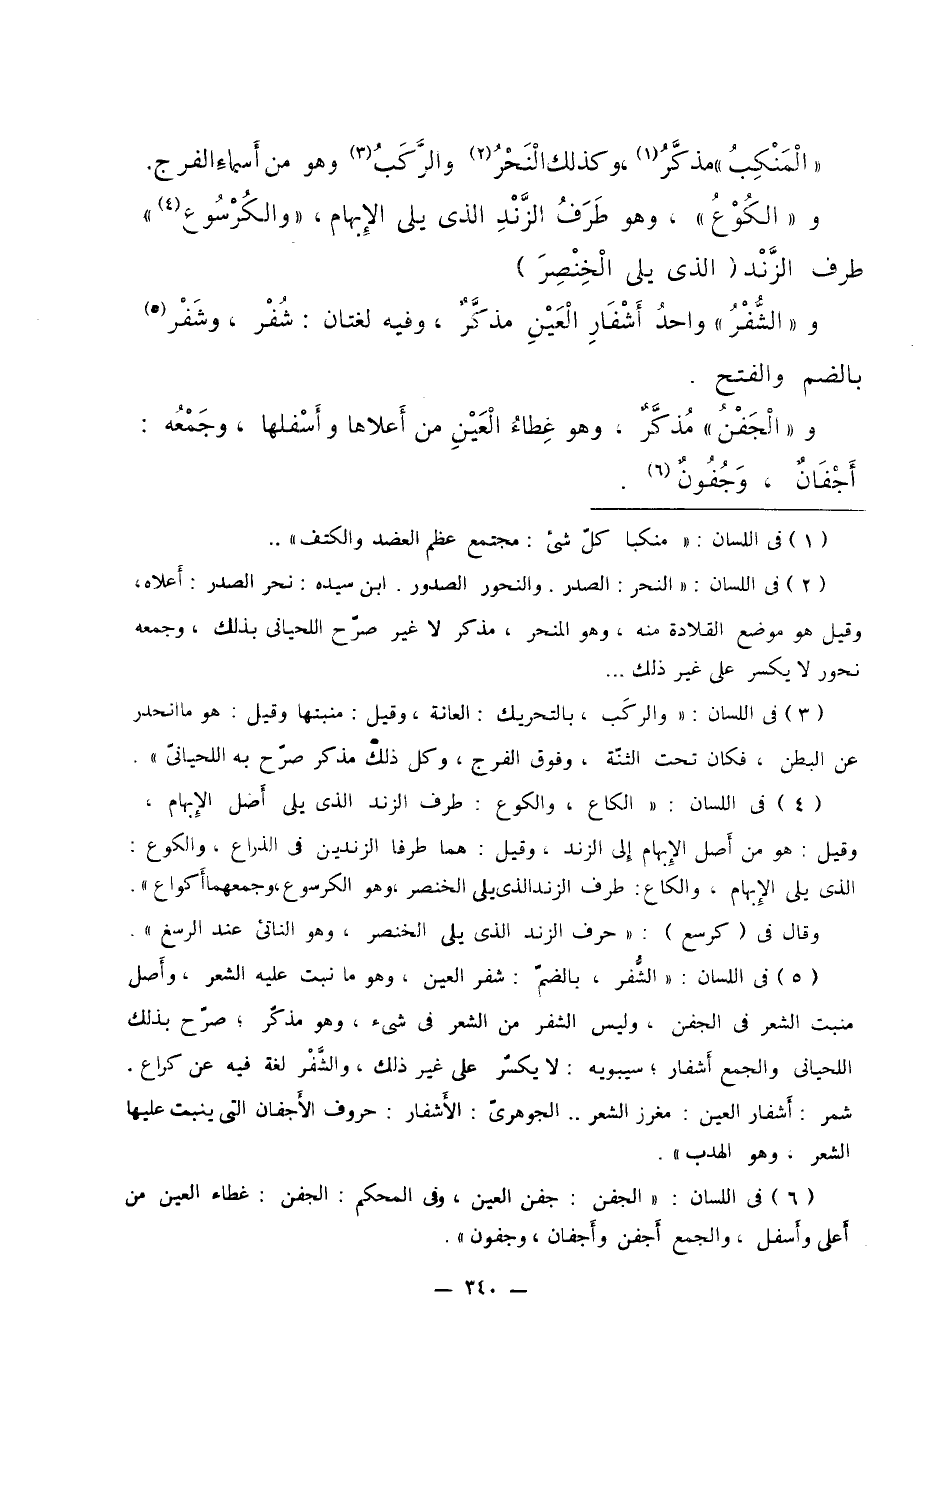 « الْمَنْكِبُ » مذكَّرٌ(١) ، وكذلك النَّحْرُ(٢) والرَّكَبُ(٣) وهو من أَسماء الفرج.
و « الكُوْعُ » ، وهو طَرَفُ الزَّنْدِ الذى يلى الإِبهام ، « والكُرْسُوع(٤) »
طرف الزَّنْد ( الذى يلى الْخِنْصِرَ )
و « الشُّفْرُ » واحدُ أَشْفَارِ الْعَيْنِ مذكَّرٌ ، وفيه لغتان : شُفْر ، وشَفْر(٥)
بالضم والفتح .
و « الْجَفْنُ » مُذكَّرٌ ، وهو غِطاءُ الْعَيْنِ من أَعلاها وأَسْفلها ، وجَمْعُه :
أَجْفَانٌ ، وَجُفُونٌ(٦) .
(١) فى اللسان : « منكبا كلّ شئ : مجتمع عظم العضد والكتف » ..
(٢) فى اللسان : « النحر : الصدر . والنحور الصدور . ابن سيده : نحر الصدر : أَعلاه،
وقيل هو موضع القلادة منه ، وهو المنحر ، مذكر لا غير صرّح اللحيانى بذلك ، وجمعه
نحور لا يكسر على غير ذلك ...
(٣) فى اللسان : « والركَب ، بالتحريك : العانة ، وقيل : منبتها وقيل : هو ماانحدر
عن البطن ، فكان تحت الثنّة ، وفوق الفرج ، وكل ذلك مذكر صرّح به اللحيانىّ » .
(٤) فى اللسان : « الكاع ، والكوع : طرف الزند الذى يلى أَصل الإِبهام ،
وقيل : هو من أَصل الإِبهام إِلى الزند ، وقيل : هما طرفا الزندين فى الذراع ، والكوع :
الذى يلى الإِبهام ، والكاع: طرف الزندالذى يلى الخنصر ،وهو الكرسوع،وجمعهماأَكواع» .
وقال فى ( كرسع ) : « حرف الزند الذى يلى الخنصر ، وهو الناتئ عند الرسغ » .
(٥) فى اللسان : « الشُّفر ، بالضمّ : شفر العين ، وهو ما نبت عليه الشعر ، وأَصل
منبت الشعر فى الجفن ، وليس الشفر من الشعر فى شىء ، وهو مذكّر ؛ صرّح بذلك
اللحيانى والجمع أَشفار ؛ سيبويه : لا يكسّر على غير ذلك ، والشَّفْر لغة فيه عن كراع .
شمر : أَشفار العين : مغرز الشعر .. الجوهرىّ : الأَشفار : حروف الأَجفان التى ينبت عليها
الشعر ، وهو الهدب » .
(٦) فى اللسان : « الجفن : جفن العين ، وفى المحكم : الجفن : غطاء العين من
أَعلى وأَسفل ، والجمع أَجفن وأَجفان ، وجفون » .
— ٣٤٠ —